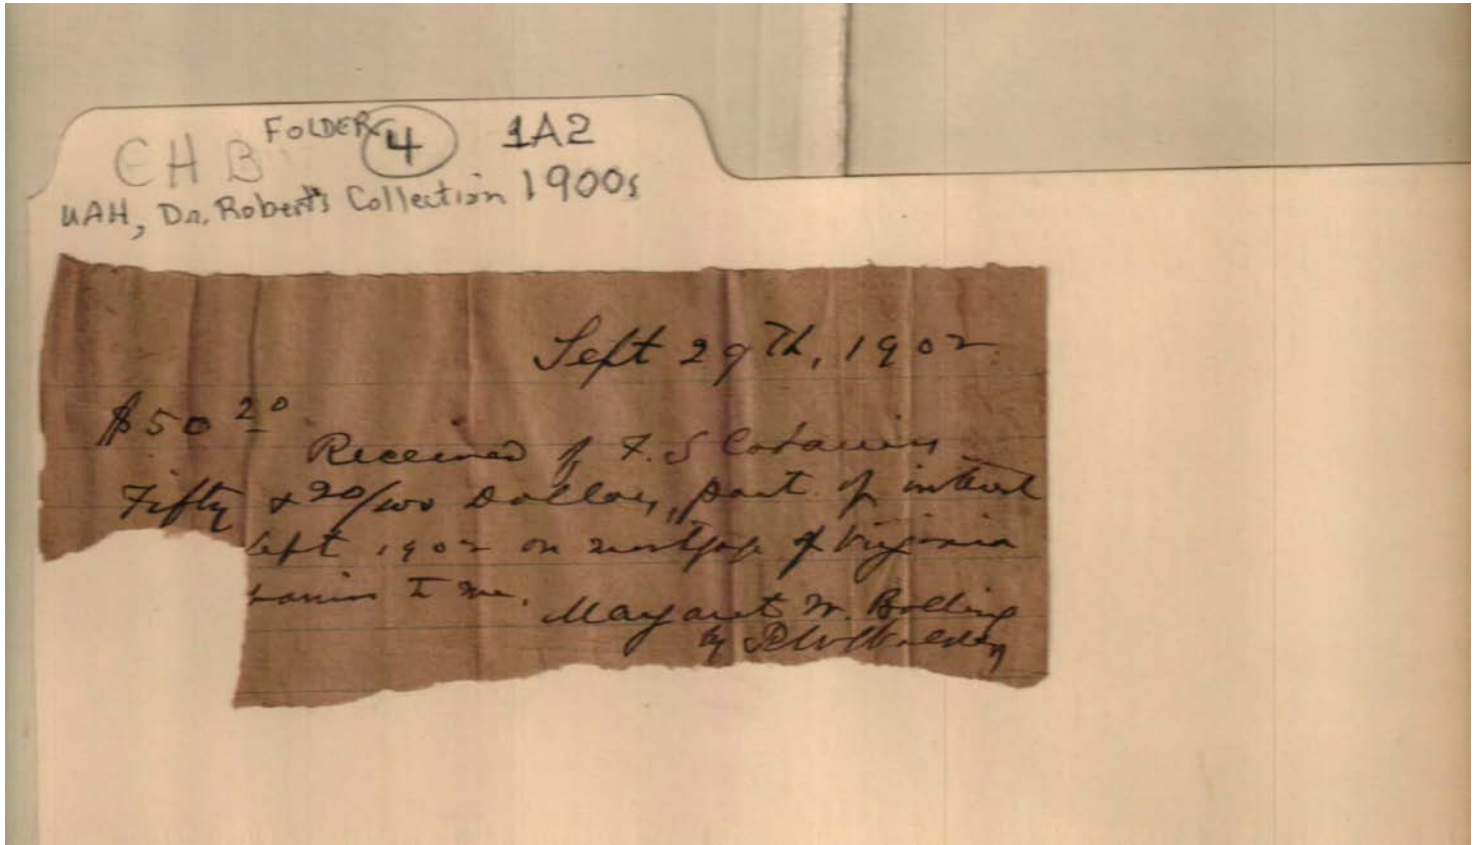 FOLDER 4 1A2
EHB
UAH, Dr. Robert's Collection 1900s
Sept 29th, 1902
$50 20
Received of F. S
Fifty & 20/100 Dollars, part of interest
Sept 1902 on mortgage of Virginia
to me.
Margaret W. Bolling
by